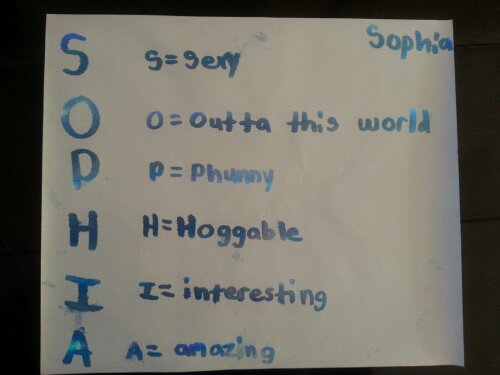 Sophia
S S=Sexy
O O=Outta this world
P P=Phunny
H H=Hoggable
I I=interesting
A A=amazing